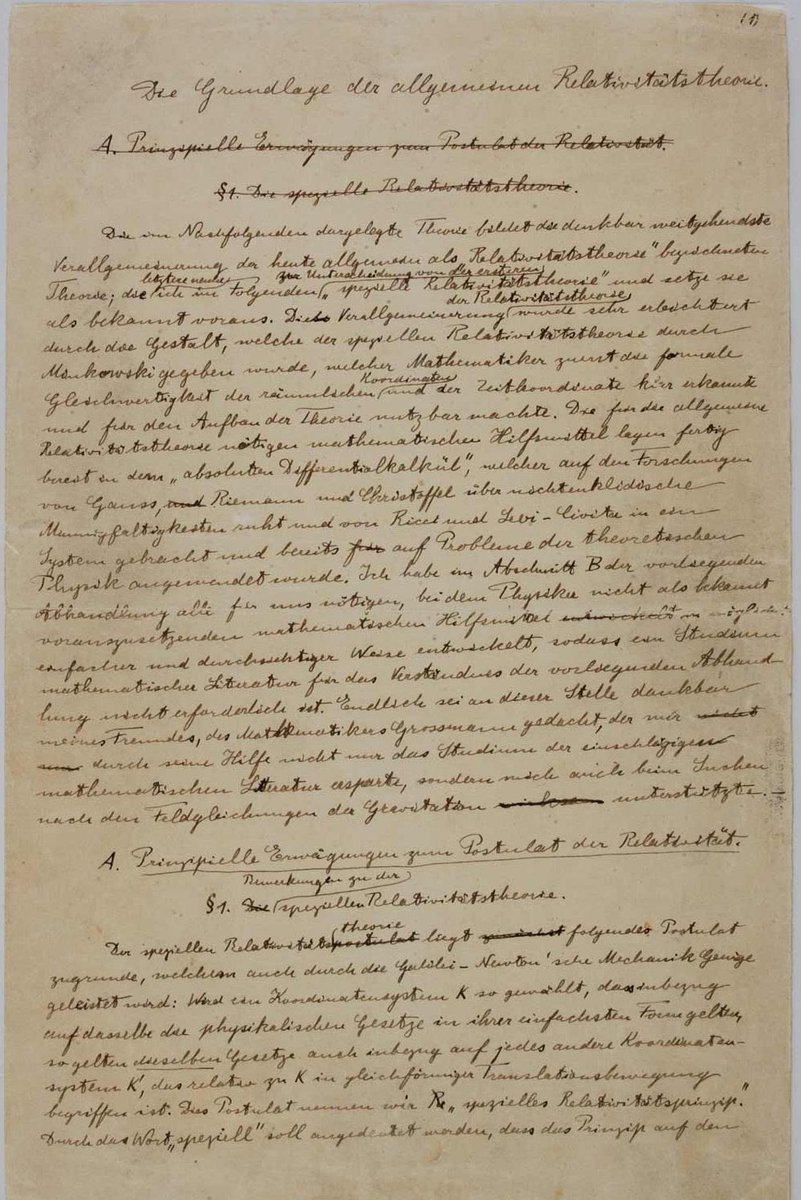 (1)
Die Grundlage der allgemeinen Relativitätstheorie.
A. Prinzipielle Erwägungen zum Postulat der Relativität.
§1. Die spezielle Relativitätstheorie.
Die im Nachfolgenden dargelegte Theorie bildet die denkbar weitgehendste
Verallgemeinerung der heute allgemein als „Relativitätstheorie" bezeichneten
letztere nenne zur Unterscheidung von der ersteren
Theorie; die ich im Folgenden „spezielle Relativitätstheorie" und setze sie
der Relativitätstheorie
als bekannt voraus. Die Verallgemeinerung wurde sehr erleichtert
durch die Gestalt, welche der speziellen Relativitätstheorie durch
Minkowski gegeben wurde, welcher Mathematiker zuerst die formale
Koordinaten
Gleichwertigkeit der räumlichen und der Zeitkoordinate klar erkannte
und für den Aufbau der Theorie nutzbar machte. Die für die allgemeine
Relativitätstheorie nötigen mathematischen Hilfsmittel lagen fertig
bereit in dem „absoluten Differentialkalkül", welcher auf den Forschungen
von Gauss, und Riemann und Christoffel über nichteuklidische
Mannigfaltigkeiten ruht und von Ricci und Levi-Civita in ein
System gebracht und bereits für auf Probleme der theoretischen
Physik angewendet wurde. Ich habe im Abschnitt B der vorliegenden
Abhandlung alle für uns nötigen, bei dem Physiker nicht als bekannt
vorauszusetzenden mathematischen Hilfsmittel entwickelt in möglichst
einfacher und durchsichtiger Weise entwickelt, sodass ein Studium
mathematischer Literatur für das Verständnis der vorliegenden Abhand-
lung nicht erforderlich ist. Endlich sei an dieser Stelle dankbar
meines Freundes, des Mathematikers Grossmann gedacht, der mir nicht
nur durch seine Hilfe nicht nur das Studium der einschlägigen
mathematischen Literatur ersparte, sondern mich auch beim Suchen
nach den Feldgleichungen der Gravitation unterstützte. —
A. Prinzipielle Erwägungen zum Postulat der Relativität.
Bemerkungen zu der
§1. Die speziellen Relativitätstheorie.
theorie
Der speziellen Relativitätspostulat liegt zunächst folgendes Postulat
zugrunde, welchem auch durch die Galilei-Newton'sche Mechanik Genüge
geleistet wird: Wird ein Koordinatensystem K so gewählt, dass inbezug
auf dasselbe die physikalischen Gesetze in ihrer einfachsten Form gelten,
so gelten dieselben Gesetze auch inbezug auf jedes andere Koordinaten-
system K', das relativ zu K in gleichförmiger Translationsbewegung
begriffen ist. Dies Postulat nennen wir Re „spezielles Relativitätsprinzip."
Durch das Wort „speziell" soll angedeutet werden, dass das Prinzip auf den